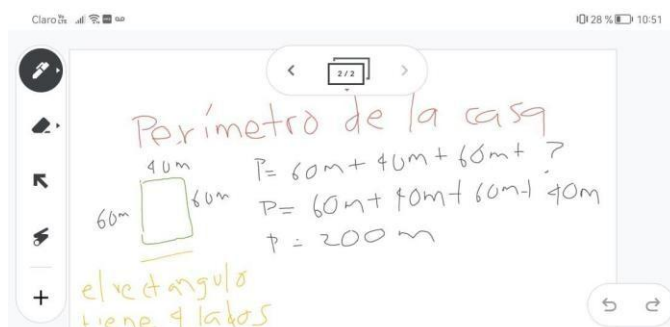 Claro 28 % 10:51
2 / 2
Perímetro de la casa
40m
P= 60m + 40m + 60m + ?
60m
60m
P= 60m + 40m + 60m + 40m
P = 200 m
el rectangulo
tiene 4 lados